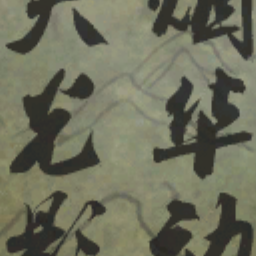 烟华动
天光影